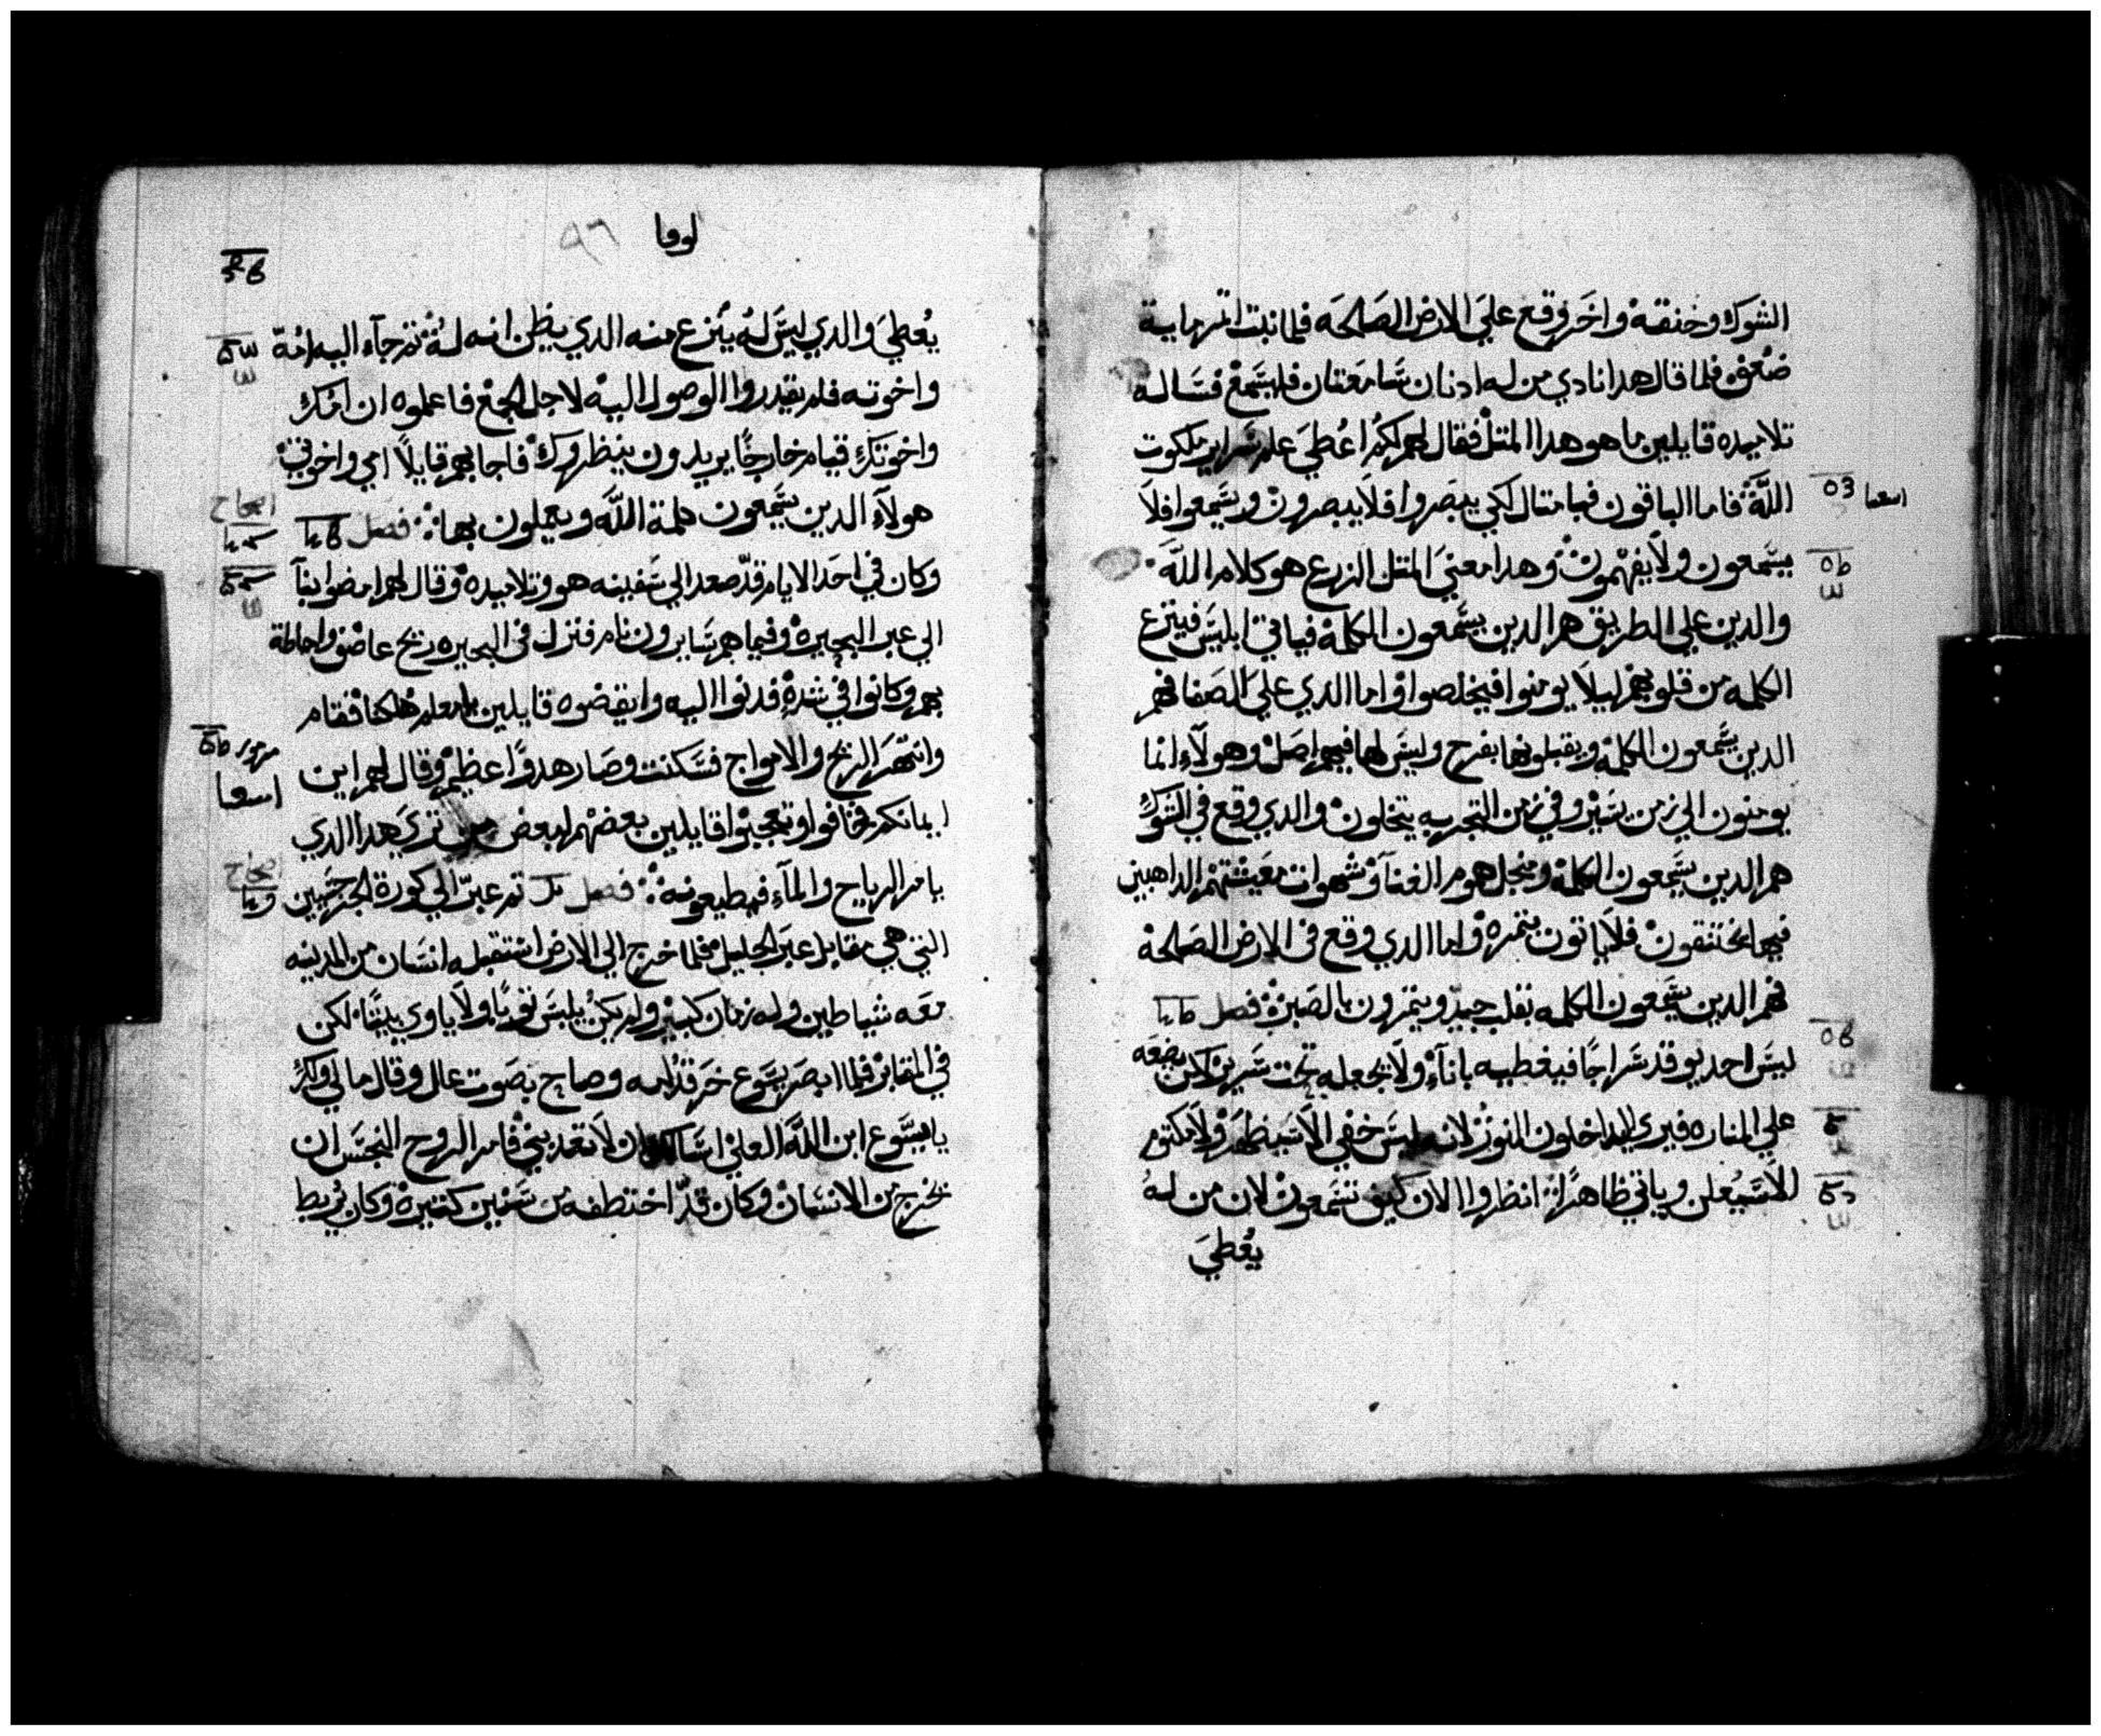 الشوك وخنقه واخر وقع علي الارض الصالحه فلما نبت اتمر ماية
ضعف فلما قال هدا نادي من له ادنان سامعتان فليسمع فساله
تلاميده قايلين ما هو هدا المتل فقال لهم لكم اعطي علم سراير ملكوت
الله فاما الباقون فبامتال لكي يبصروا فلا يبصرون ويسمعوا فلا
يسمعون ولا يفهمون وهدا معني المتل الزرع هو كلام الله
والدين علي الطريق هم الدين يسمعون الكلمة فياتي ابليس فينزع
الكلمه من قلوبهم ليلا يومنوا فيخلصوا واما الدي علي الصفا فهم
الدين يسمعون الكلمة ويقبلونها بفرح وليس لها فيهم اصل وهولاء انما
يومنون الي زمن يسير وفي زمن التجربه يتخلون والدي وقع في الشوك
هم الدين يسمعون الكلمة ومنجل هموم الغنا وشهوات معيشتهم الداهبين
فيها يختنقون فلا ياتون بتمره واما الدي وقع في الارض الصالحة
فهم الدين يسمعون الكلمه بقلب جيد ويتمرون بالصبر فصل
ليس احد يوقد سراجا فيغطيه باناء ولا يجعله تحت سرير لكن يضعه
علي المناره فيري الداخلون النور لانه ليس خفي الا سيظهر ولا مكتوم
الا سيعلن وياتي ظاهرا انظروا الان كيف تسمعون لان من له
يعطي
لوقا
٩٦
يعطي والدي ليس له ينزع منه الدي يظن انه له تم جاء اليه امه
واخوته فلم يقدروا الوصول اليه لاجل الجمع فاعلموه ان امك
واخوتك قيام خارجا يريدون ينظروك فاجابهم قايلا امي واخوتي
هولاء الدين يسمعون كلمة الله ويعملون بها فصل
وكان في احد الايام قد صعد الي سفينه هو وتلاميده وقال لهم امضوا بنا
الي عبر البحيره وفيما هم سايرون نام فنزل في البحيره ريح عاصف واحاطة
بهم وكانوا في شدة فدنوا اليه وايقضوه قايلين يا معلم هلكنا فقام
وانتهر الريح والامواج فسكنت وصار هدوا عظيم وقال لهم اين
ايمانكم فخافوا وتعجبوا قايلين بعضهم لبعض من تري هدا الدي
يامر الرياح والماء فيطيعونه فصل تم عبر الي كورة الجرجسيين
التي هي مقابل عبر الجليل فلما خرج الي الارض استقبله انسان من المدينه
معه شياطين وله زمان كبير ولم يكن يلبس توبا ولا ياوي بيتا لكن
في المقابر فلما ابصر يسوع خر قدامه وصاح بصوت عال وقال ما لي ولك
يا يسوع ابن الله العلي اسالك ان لا تعدبني فامر الروح النجس ان
يخرج من الانسان وكان قد اختطفه من سنين كتيره وكان يربط